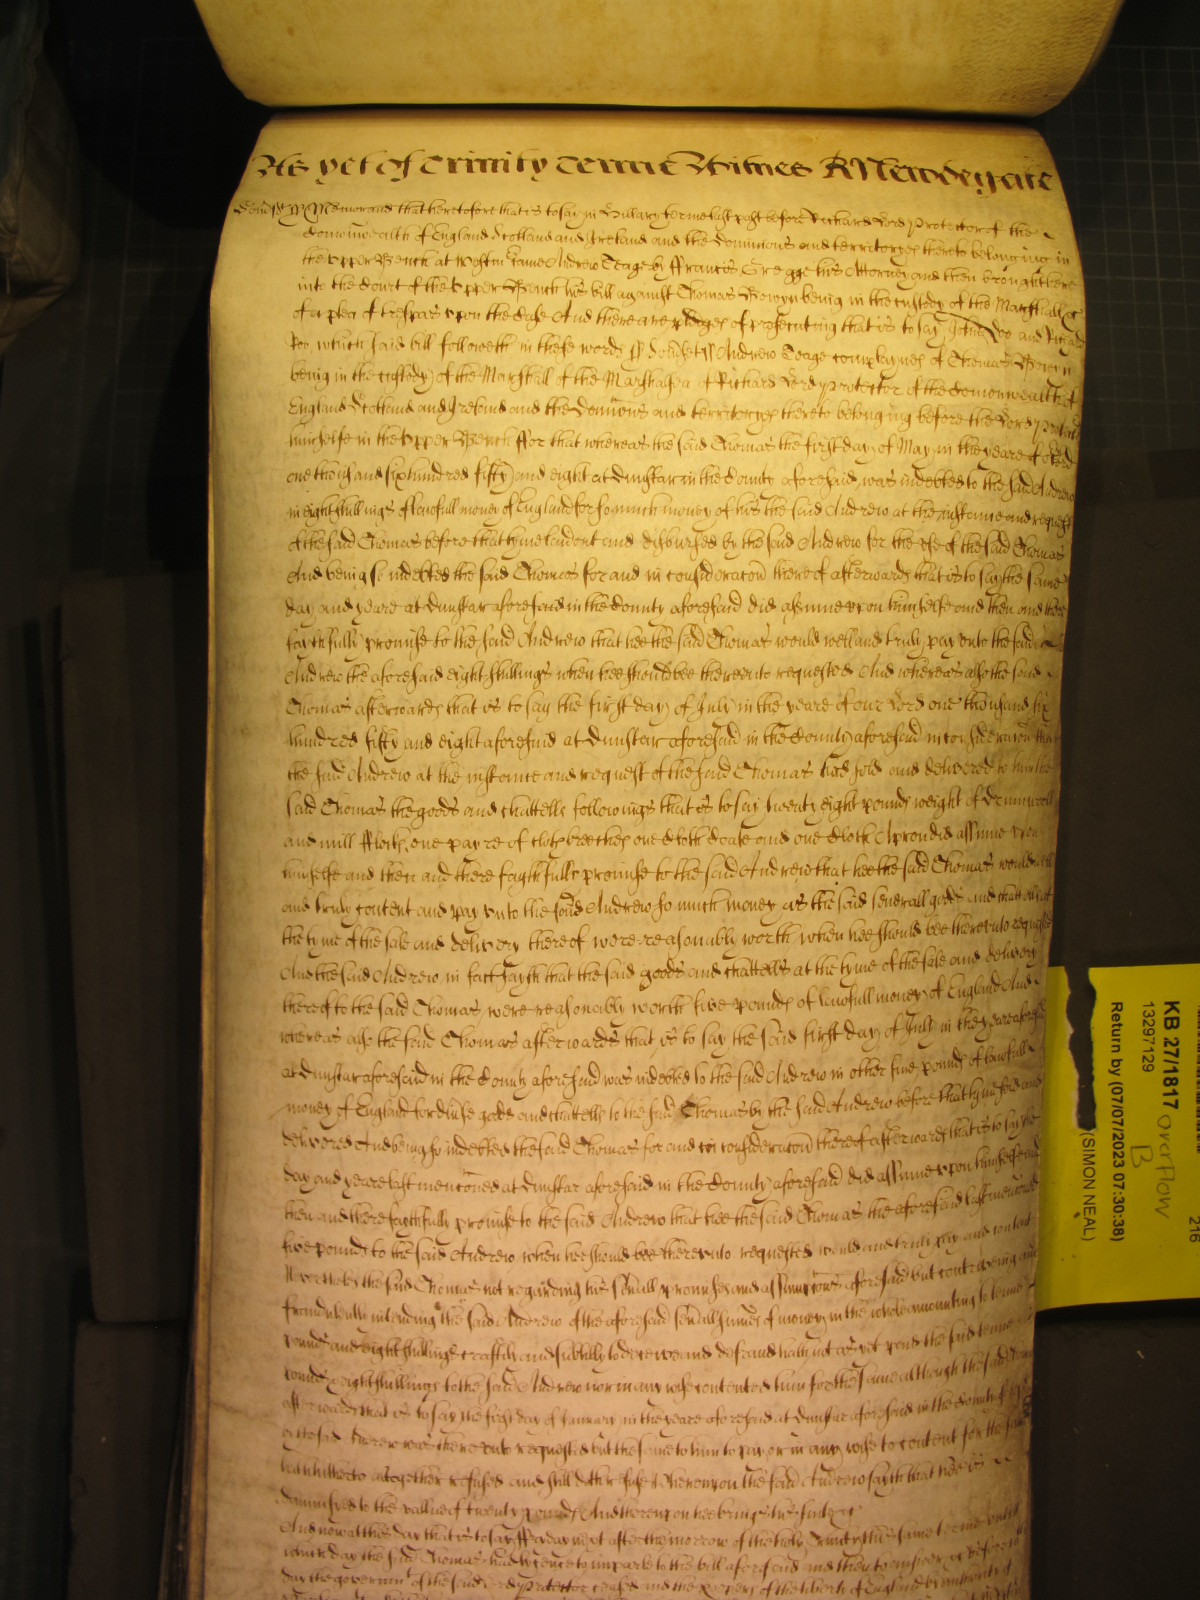 As yet of Trinity Terme Witnes R Newdegate
Somset ss Memorand that heretofore that is to say in Hillary terme last past before Richard Lord Protector of the
Comonwealth of England Scotland and Ireland and the Dominions and territoryes thereto belonging in
the Upper Bench at Westm came Andrew Teage by Francis Gregge his Attorney and then brought here
into the Court of the Upper Bench his bill against Thomas Bowyn being in the custody of the Marshall &c
of a plea of trespas upon the Case And there are pledges of prosecuting that is to say John Doe and Richard
Roe, which said bill followeth in these words ss Somset ss Andrew Teage complaynes of Thomas Bowyn
being in the custody of the Marshall of the Marshalsea of Richard Lord Protector of the Comonwealth of
England Scotland and Ireland and the Dominions and territoryes thereto belonging before the Lord Protector
himselfe in the Upper Bench ffor that whereas the said Thomas the first day of May in the yeare of o Lord
one thousand six hundred fifty and eight at Dunstar in the County aforesaid was indebted to the said Andrew
in eight shillings of lawfull money of England for so much money of his the said Andrew at the instance and request
of the said Thomas before that tyme laid out and disbursed by the said Andrew for the use of the said Thomas
And being so indebted the said Thomas for and in consideracon thereof afterwards that is to say the same
day and yeare at Dunstar aforesaid in the County aforesaid did assume upon himselfe and then and there
faythfully promise to the said Andrew that hee the said Thomas would well and truly pay unto the said
Andrew the aforesaid eight shillings when hee should bee thereunto requested And whereas also the said
Thomas afterwards that is to say the first day of July in the yeare of our Lord one thousand six
hundred fifty and eight aforesaid at Dunstar aforesaid in the County aforesaid in consideracon that
the said Andrew at the instance and request of the said Thomas had sold and delivered to him the
said Thomas the goods and chattells followings that is to say twenty eight pounds weight of
and mill fflocks, one payre of cloth breeches one Cloth Coate and one Cloth Apron did assume upon
himselfe and then and there faythfully promise to the said Andrew that hee the said Thomas would well
and truly content and pay unto the said Andrew so much money as the said severall goods and chattells at
the tyme of the sale and delivery thereof were reasonably worth when hee should bee thereunto requested
And the said Andrew in fact sayth that the said goods and chattells at the tyme of the sale and delivery
thereof to the said Thomas were reasonably worth five pounds of lawfull money of England And
whereas also the said Thomas afterwards that is to say the said first day of July in the yeare aforesaid
at Dunstar aforesaid in the County aforesaid was indebted to the said Andrew in other five pounds of lawfull
money of England for diverse goods and chattells to the said Thomas by the said Andrew before that tyme sold and
delivered And being so indebted the said Thomas for and in consideracon thereof afterwards that is to say the
day and yeare last mentioned at Dunstar aforesaid in the County aforesaid did assume upon himselfe and
then and there faythfully promise to the said Andrew that hee the said Thomas the aforesaid last mentioned
five pounds to the said Andrew when hee should bee thereunto requested would and truly pay and content
Neverthelesse the said Thomas not regarding his severall promises and assumptions aforesaid but contriveing and
fraudulently intending the said Andrew of the aforesaid severall summes of money in the whole amounting to tenne
pounds and eight shillings craftily and subtilly to deceive and defraud hath not as yet payd the said tenne
pounds eight shillings to the said Andrew nor in any wise contented him for the same although the said Thomas
afterwards that is to say the first day of January in the yeare aforesaid at Dunstar aforesaid in the County aforesaid
by the said Andrew was thereunto requested but the same to him to pay or in any wise to content for the same
hath hitherto altogether refused and still doth refuse Whereupon the said Andrew sayth that hee is
damnifyed to the vallue of twenty pounds And thereupon hee brings his suite &c
And now at this day that is to say ffryday next after the morrow of the holy Trinity this same terme untill
which day the said Thomas had lycence to imparle to the bill aforesaid and then to answer &c before which
day the goverm of the said Lord Protector ceased and the Keepers of the liberty of England by authority of
KB 27/1817
13297129
overflow
B
Return by (07/07/2023 07:30:38)
(SIMON NEAL)
216